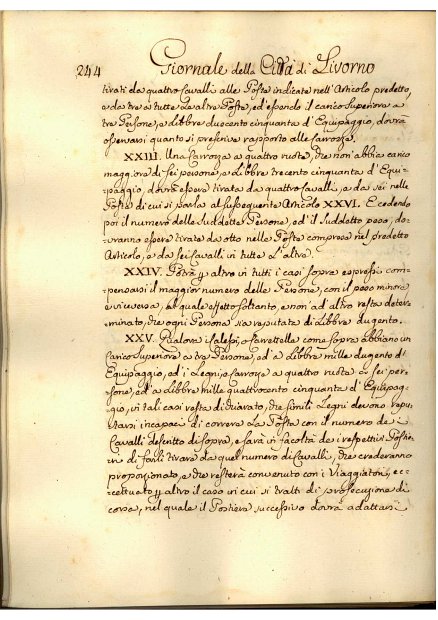 244 Giornale della Città di Livorno
tirati da quattro Cavalli alle Poste indicate nell'Articolo predetto,
e da tre a tutte le altre Poste, ed essendo il carico superiore a
tre Persone, e libbre duecento cinquanta d'Equipaggio, dovrà
osservarsi quanto si prescrive rapporto alle Carrozze.
XXIII. Una Carrozza a quattro ruote, che non abbia carico
maggiore di sei persone, e libbre trecento cinquanta d'Equi-
paggio, dovrà essere tirata da quattro Cavalli, e da sei nelle
Poste di cui si parla al susseguente Articolo XXVI. Eccedendo
poi il numero delle suddette Persone, ed il suddetto peso, do-
vranno essere tirate da otto nelle Poste comprese nel predetto
Articolo, e da sei Cavalli in tutte l'altre.
XXIV. Potrà altro in tutti i casi sopra espressi com-
pensarsi il maggior numero delle Persone, con il peso minore
e viceversa, al quale effetto soltanto, e non ad altro resta deter-
minato, che ogni Persona sia reputata di Libbre dugento.
XXV. Qualora i Calessi, o sterzette come sopra abbiano un
Carico Superiore a tre Persone, ed a Libbre mille dugento d'
Equipaggio, ed i Legni, o Carrozze a quattro ruote a sei per-
sone, ed a Libbre mille quattrocento cinquanta d'Equipag-
gio, in tali casi resta dichiarato, che simili Legni devono repu-
tarsi incapaci di correre la Posta con il numero de i
Cavalli descritto di sopra, e sarà in facoltà de i respettivi Postie-
ri di farli tirare da quel numero di Cavalli, che crederanno
proporzionato, e che resterà convenuto con i Viaggiatori, ec-
cettuato altro il caso in cui si tratti di prosecuzione di
corsa, nel quale il Postiere successivo dovrà adattarsi